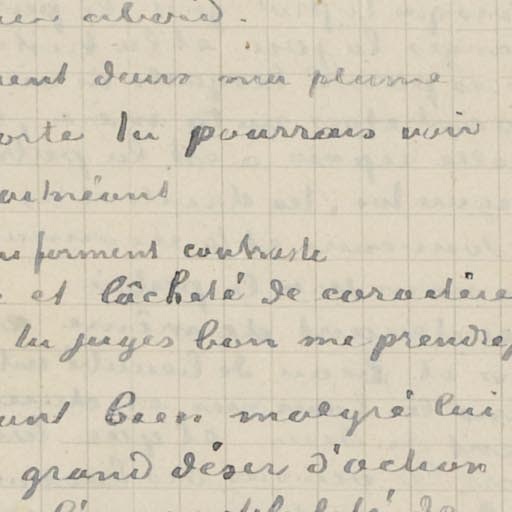 abord.
dans ma plume
tu pourrais voir
fainéant
forment contraste
et lâcheté de caractère
tu juges bon me prendre
bien malgré lui
grand désir d'action